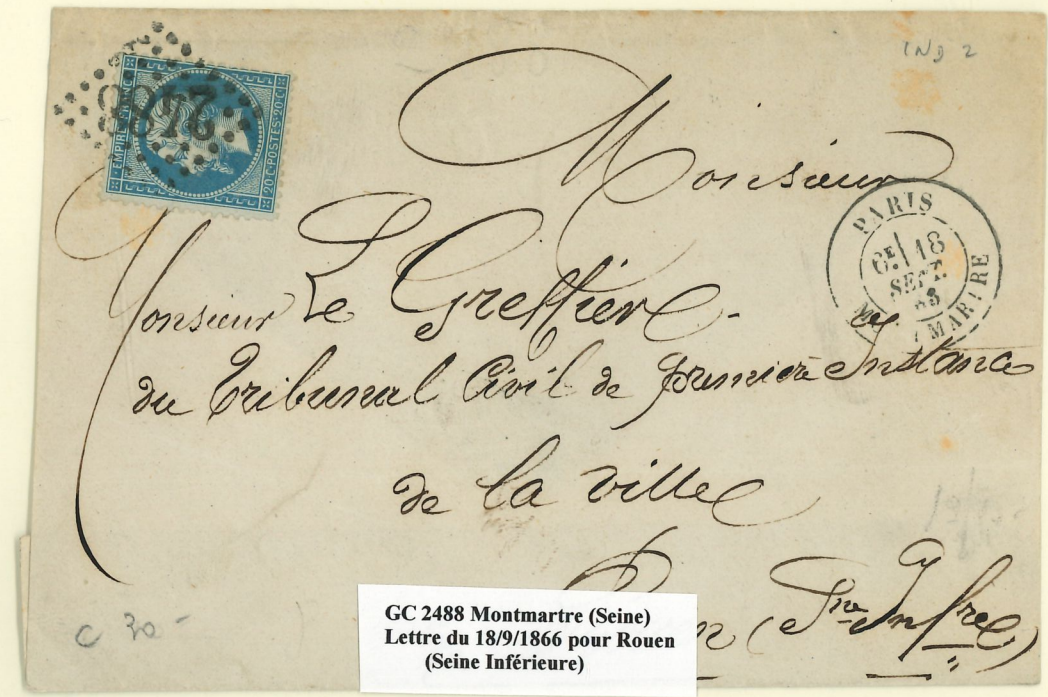 IND 2
2488
EMPIRE FRANC
20 C POSTES 20 C
Monsieur
PARIS
6E 18
SEPT.
MARTRE
Monsieur Le Greffier
du Tribunal Civil de première Instance
de la ville
n (Sne Infre)
C 30 -
GC 2488 Montmartre (Seine)
Lettre du 18/9/1866 pour Rouen
(Seine Inférieure)